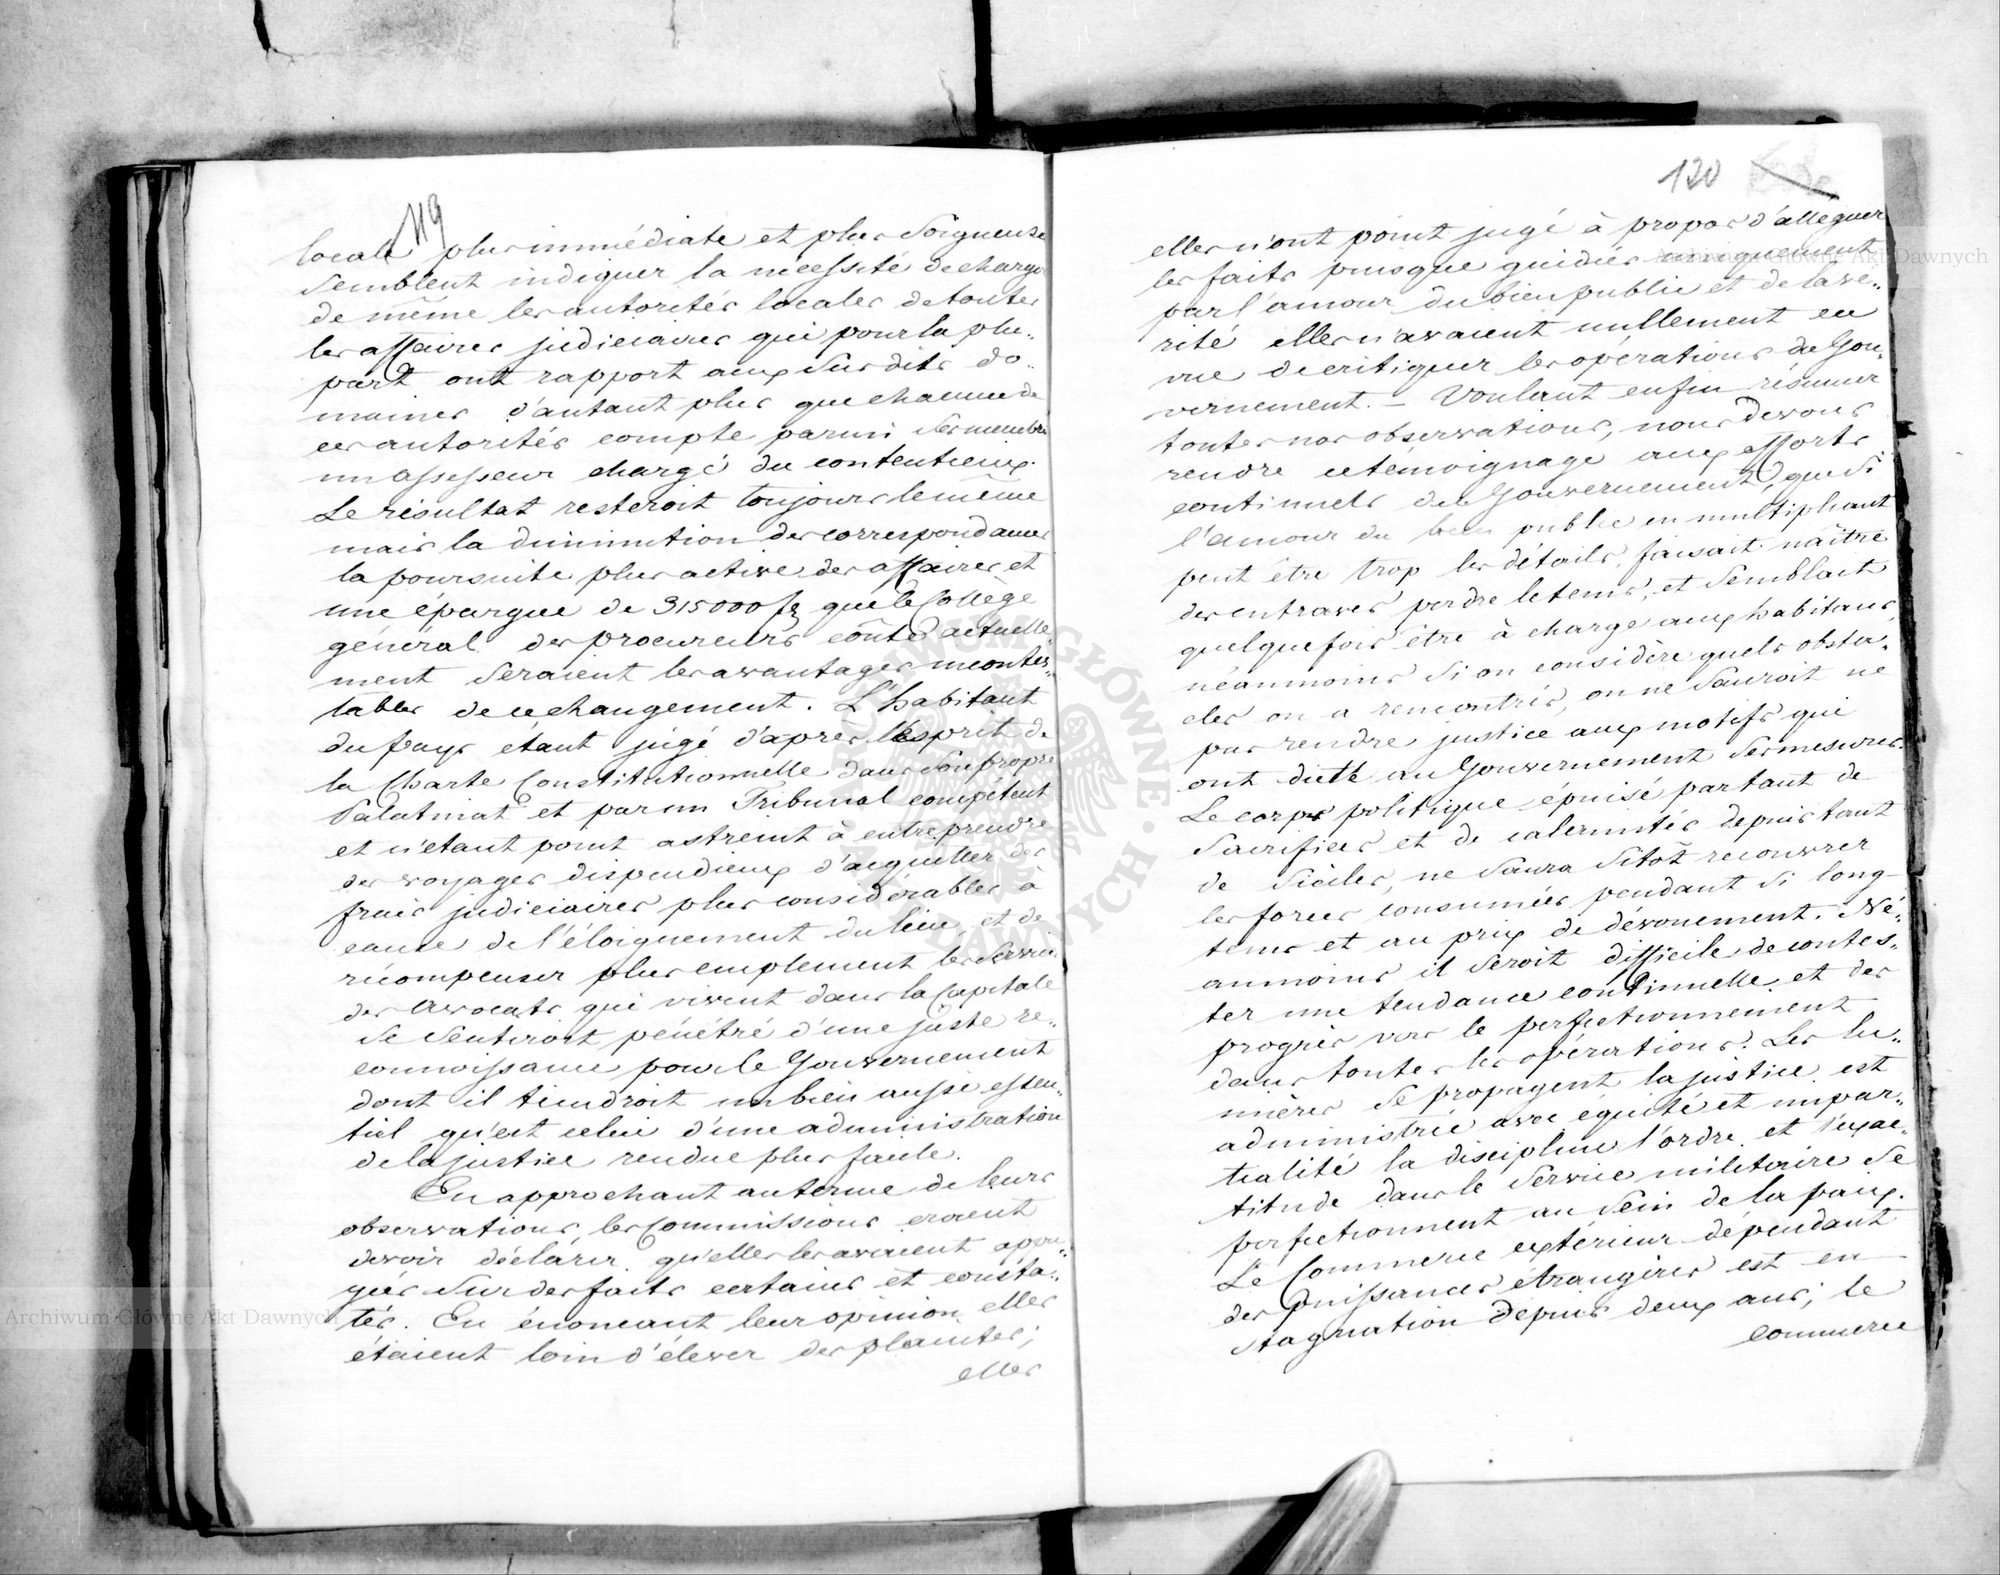 119
locale plus immédiate et plus soigneuse
semblent indiquer la nécessité de charger
de même les autorités locales de toutes
les affaires judiciaires qui pour la plu„
part ont rapport aux susdits do„
maines, d'autant plus que chacune de
ces autorités compte parmi ses membres
un assesseur chargé du contentieux.
Le résultat resteroit toujours le même
mais la diminution des correspondances
la poursuite plus active des affaires et
une épargne de 315000 fl que le Collège
général des procureurs coûte actuelle„
ment seraient les avantages incontes„
tables de ce changement. L'habitant
du pays étant jugé d'après l'esprit de
la Charte Constitutionnelle dans son propre
Palatinat et par un Tribunal compétent
et n'étant point astreint à entreprendre
des voyages dispendieux d'acquitter des
frais judiciaires plus considérables à
cause de l'éloignement du lieu, et de
récompenser plus emplement les services
des Avocats qui vivent dans la Capitale
se sentiroit pénétré d'une juste re„
connoissance pour le Gouvernement
dont il tiendroit un bien aussi essen„
tiel qu'est celui d'une administration
de la justice rendue plus facile.
En approchant au terme de leurs
observations, les Commissions croient
devoir déclarer qu'elles les avaient appu„
yées sur des faits certains et consta„
tés. En énoncant leur opinion elles
étaient loin d'élever des plaintes;
elles
120
elles n'ont point jugé à propos d'alleguer
les faits puisque guidées uniquement
par l'amour du bien public et de la vé„
rité elles n'avaient nullement en
vue de critiquer les opérations du Gou„
vernement. – Voulant enfin résumer
toutes nos observations, nous devons
rendre ce témoignage aux efforts
continuels du Gouvernement, que si
l'amour du bien public en multipliant
peut être trop les détails, faisait naître
des entraves, perdre le tems, et semblait
quelquefois être à charge aux habitans,
néanmoins si on considère quels obsta„
cles on a rencontrés, on ne sauroit ne
pas rendre justice aux motifs qui
ont dicté au Gouvernement ses mesures.
Le corps politique épuisé par tant de
sacrifices et de calamités depuis tant
de siècles, ne saura sitôt recouvrer
les forces consumées pendant si long-
tems et au prix de dévouement. Né„
anmoins il seroit difficile de contes„
ter une tendance continuelle et des
progrès vers le perfectionnement
dans toutes les opérations. Les lu„
mières se propagent la justice est
administrée avec équité et impar„
tialité la discipline l'ordre et l'exac„
titude dans le service militaire se
perfectionnent au sein de la paix.
Le Commerce extérieur dépendant
des puissances étrangères est en
stagnation depuis deux ans; le
commerce
Archiwum Główne Akt Dawnych
Archiwum Główne Akt Dawnych
ARCHIWUM GŁÓWNE AKT DAWNYCH